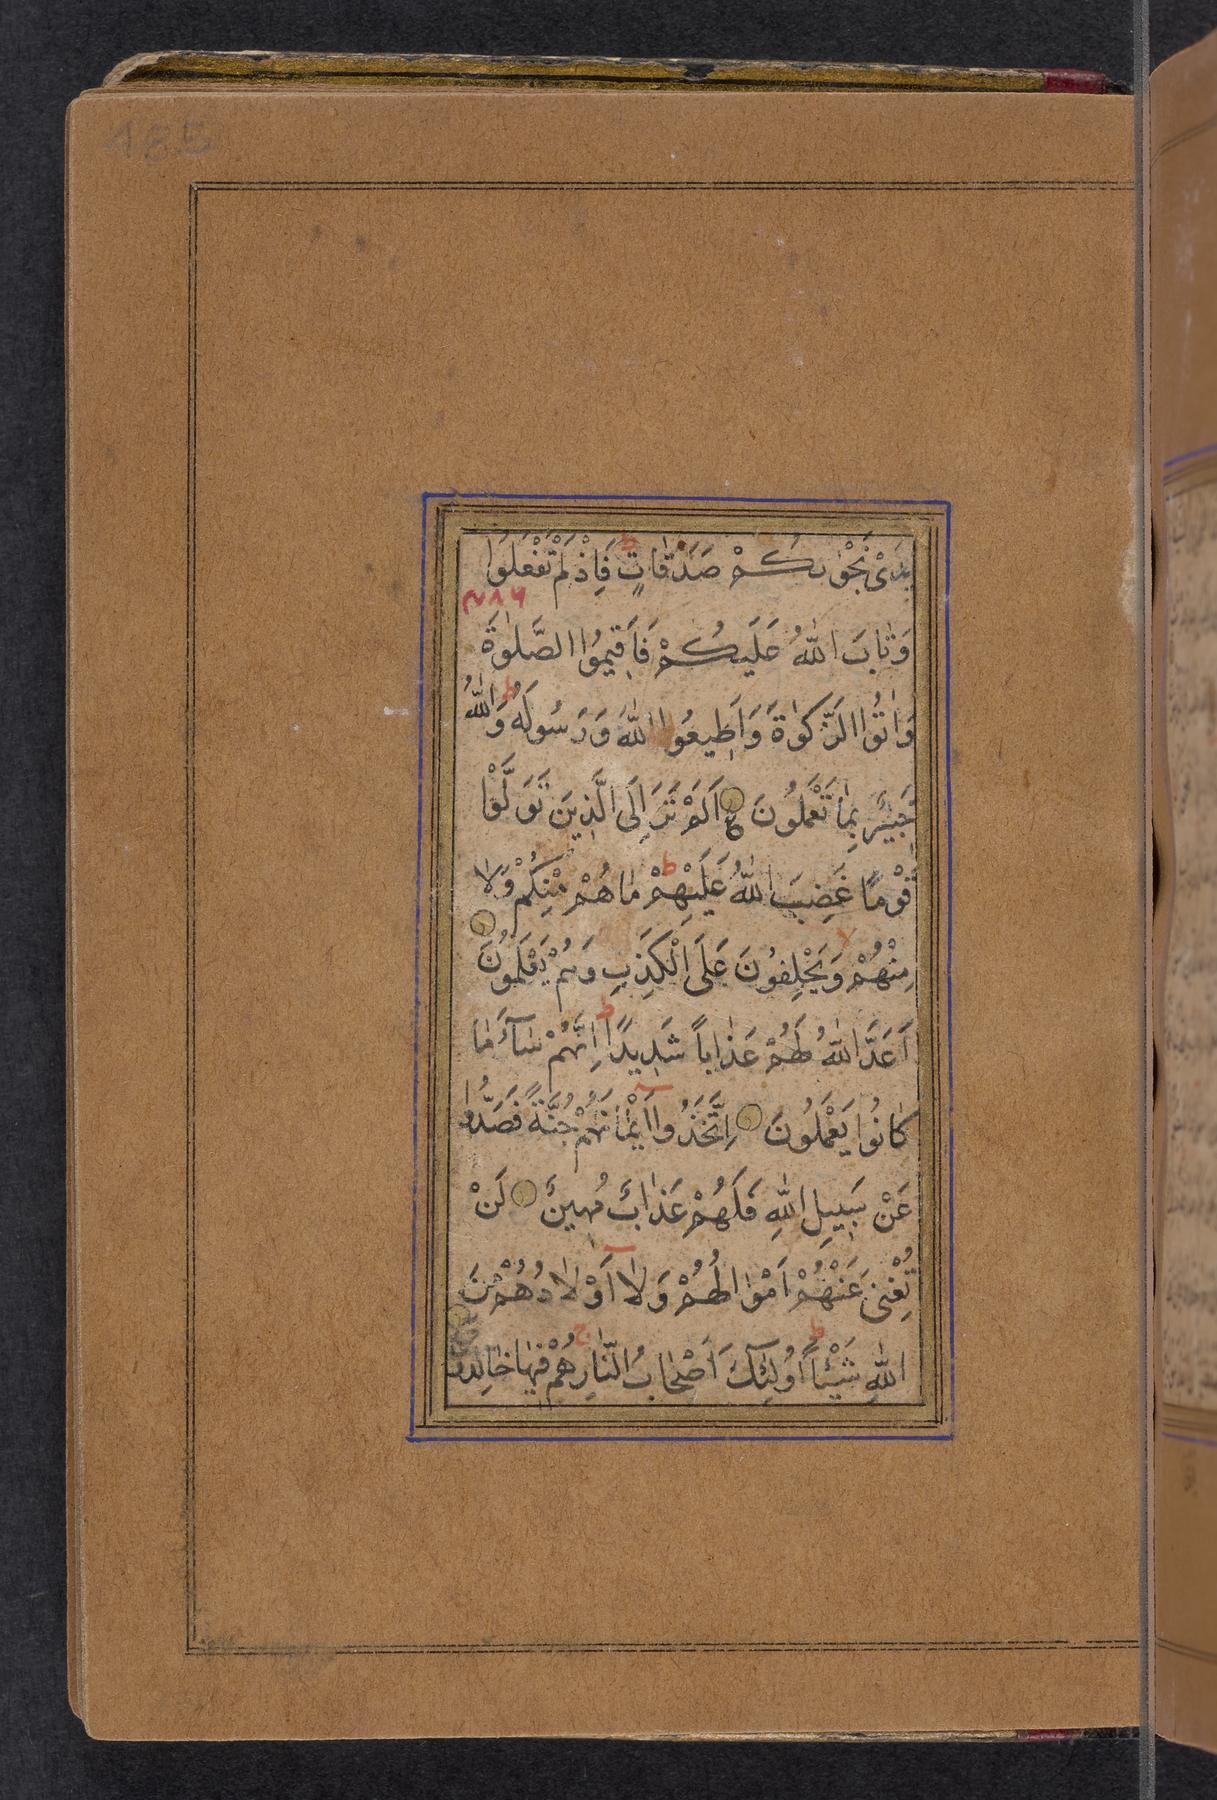 485
يَدَىْ نَجْوٰىكُمْ صَدَقَاتٍ فَاِذْ لَمْ تَفْعَلُوا
وَتَابَ اللّٰهُ عَلَيْكُمْ فَاَقِيمُوا الصَّلٰوةَ
وَاٰتُوا الزَّكَوٰةَ وَاَطِيعُوا اللّٰهَ وَرَسُولَهُ وَاللّٰهُ
خَبِيرٌ بِمَا تَعْمَلُونَ اَلَمْ تَرَ اِلَى الَّذِينَ تَوَلَّوْا
قَوْمًا غَضِبَ اللّٰهُ عَلَيْهِمْ مَا هُمْ مِنْكُمْ وَلَا
مِنْهُمْ وَيَحْلِفُونَ عَلَى الْكَذِبِ وَهُمْ يَعْلَمُونَ
اَعَدَّ اللّٰهُ لَهُمْ عَذَاباً شَدِيدًا اِنَّهُمْ سَآءَ مَا
كَانُوا يَعْمَلُونَ اِتَّخَذُوا اَيْمَانَهُمْ جُنَّةً فَصَدُّوا
عَنْ سَبِيلِ اللّٰهِ فَلَهُمْ عَذَابٌ مُهِينٌ لَنْ
تُغْنِىَ عَنْهُمْ اَمْوَالُهُمْ وَلَا اَوْلَادُهُمْ مِنَ
اللّٰهِ شَيْئاً اُولٰئِكَ اَصْحَابُ النَّارِ هُمْ فِيهَا خَالِدُونَ